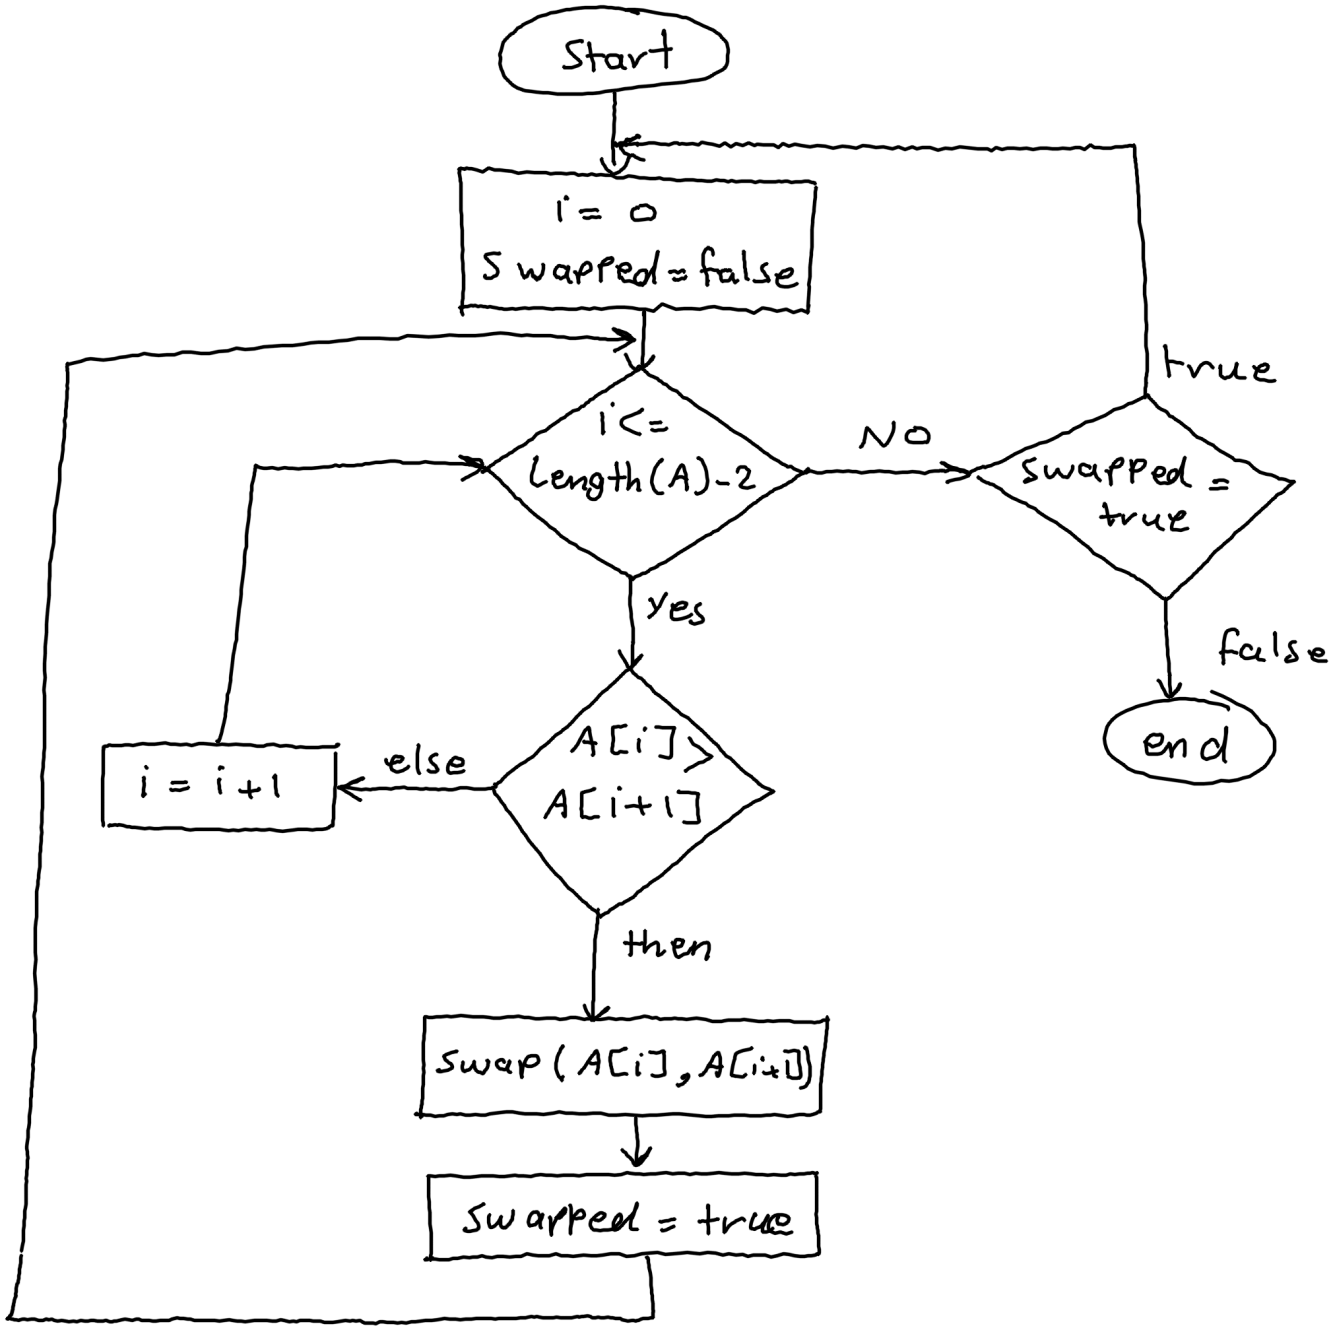 Start
i = 0
swapped = false
true
i <=
Length(A)-2
NO
swapped =
true
yes
false
end
A[i] >
A[i+1]
else
i = i+1
then
swap(A[i], A[i+1])
swapped = true